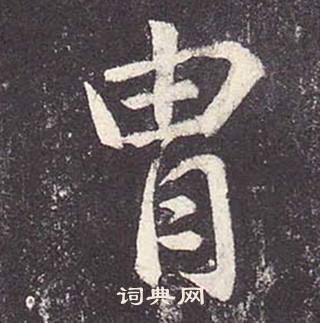 胄
词典网